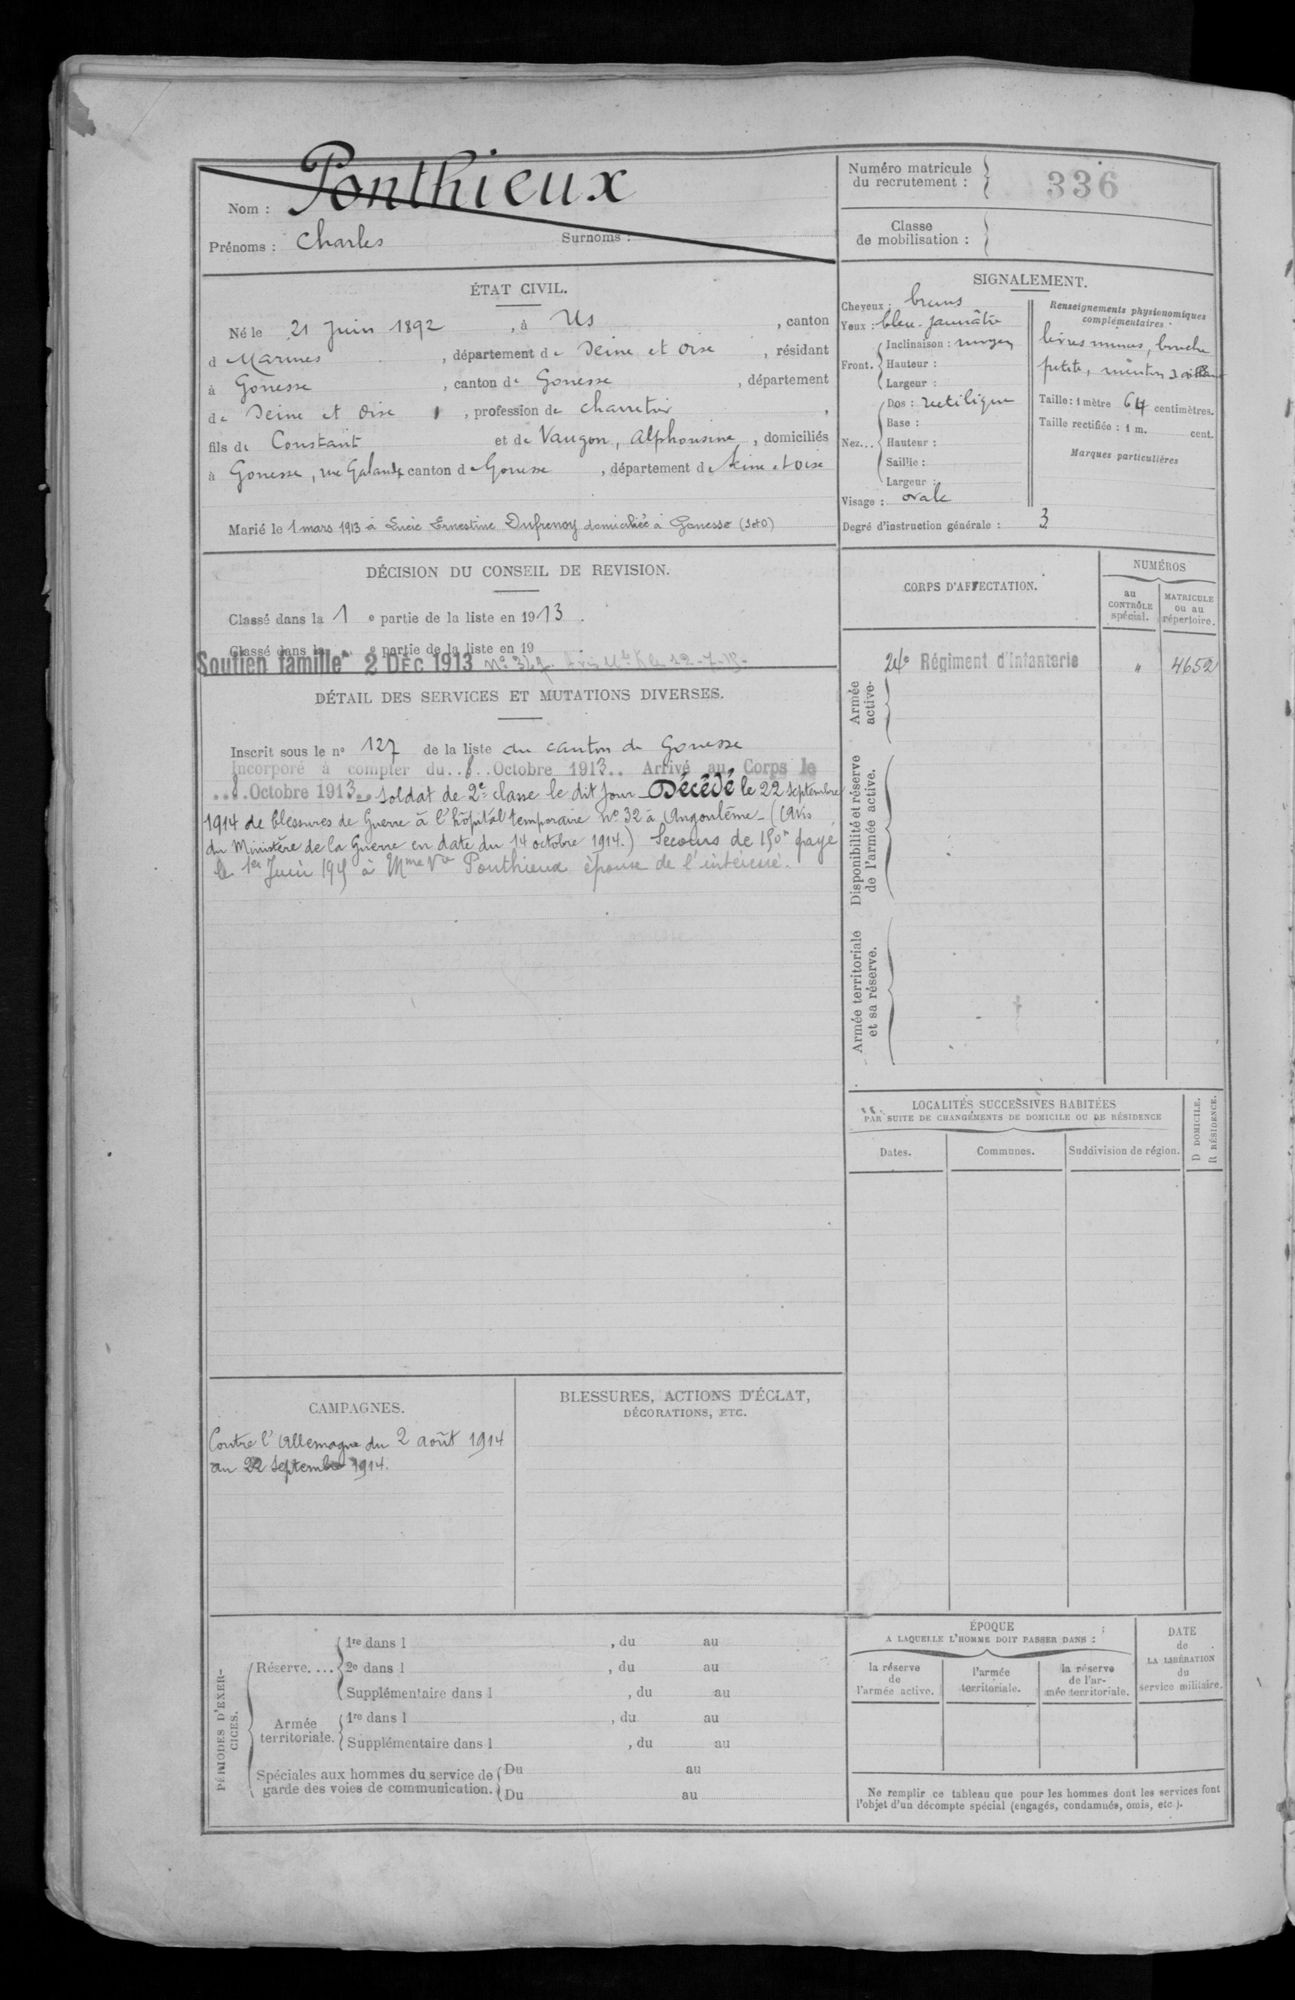 Nom : Ponthieux
Prénoms : Charles Surnoms :
Numéro matricule
du recrutement : 336
Classe
de mobilisation :
ÉTAT CIVIL.
Né le 21 Juin 1892, à Us, canton
d Marines, département de Seine et Oise, résidant
à Gonesse, canton de Gonesse, département
de Seine et Oise, profession de charretier,
fils de Constant et de Vaugon, Alphonsine, domiciliés
à Gonesse, rue Galande canton d Gonesse, département d Seine et Oise
Marié le 1 mars 1913 à Lucie Ernestine Dufrenoy domiciliée à Gonesse (S et O)
SIGNALEMENT.
Cheveux : bruns
Yeux : bleu-jaunâtre
Front. Inclinaison : moyen
Hauteur :
Largeur :
Nez... Dos : rectiligne
Base :
Hauteur :
Saillie :
Largeur :
Visage : ovale
Renseignements physionomiques
complémentaires :
lèvres minces, bouche
petite, menton saillant
Taille : 1 mètre 64 centimètres.
Taille rectifiée : 1 m. cent.
Marques particulières
Degré d'instruction générale : 3
DÉCISION DU CONSEIL DE REVISION.
Classé dans la 1 e partie de la liste en 1913.
Classé dans la e partie de la liste en 19
Soutien famille 2 DÉC 1913
DÉTAIL DES SERVICES ET MUTATIONS DIVERSES.
Inscrit sous le no 127 de la liste du canton de Gonesse
Incorporé à compter du 8 Octobre 1913. Arrivé au Corps le
8 Octobre 1913 soldat de 2e classe le dit jour Décédé le 22 septembre
1914 de blessures de Guerre à l'hôpital temporaire No 32 à Angoulême (Avis
du Ministère de la Guerre en date du 14 octobre 1914.) Secours de 150f payé
le 1er Juin 1915 à Mme Vve Ponthieux épouse de l'intéressé.
CORPS D'AFFECTATION.
NUMÉROS
au
CONTRÔLE
spécial.
MATRICULE
ou au
répertoire.
Armée
active.
24e Régiment d'Infanterie " 4652
Disponibilité et réserve
de l'armée active.
Armée territoriale
et sa réserve.
LOCALITÉS SUCCESSIVES HABITÉES
PAR SUITE DE CHANGEMENTS DE DOMICILE OU DE RÉSIDENCE
D DOMICILE.
R RÉSIDENCE.
Dates. Communes. Subdivision de région.
CAMPAGNES.
Contre l'Allemagne du 2 août 1914
au 22 septembre 1914.
BLESSURES, ACTIONS D'ÉCLAT,
DÉCORATIONS, ETC.
PÉRIODES D'EXERCICES.
Réserve.... 1re dans l , du au
2e dans l , du au
Supplémentaire dans l , du au
Armée
territoriale. 1re dans l , du au
Supplémentaire dans l , du au
Spéciales aux hommes du service de Du au
garde des voies de communication. Du au
ÉPOQUE
A LAQUELLE L'HOMME DOIT PASSER DANS :
la réserve
de
l'armée active.
l'armée
territoriale.
la réserve
de l'ar-
mée territoriale.
DATE
de
LA LIBÉRATION
du
service militaire.
Ne remplir ce tableau que pour les hommes dont les services font
l'objet d'un décompte spécial (engagés, condamnés, omis, etc.).